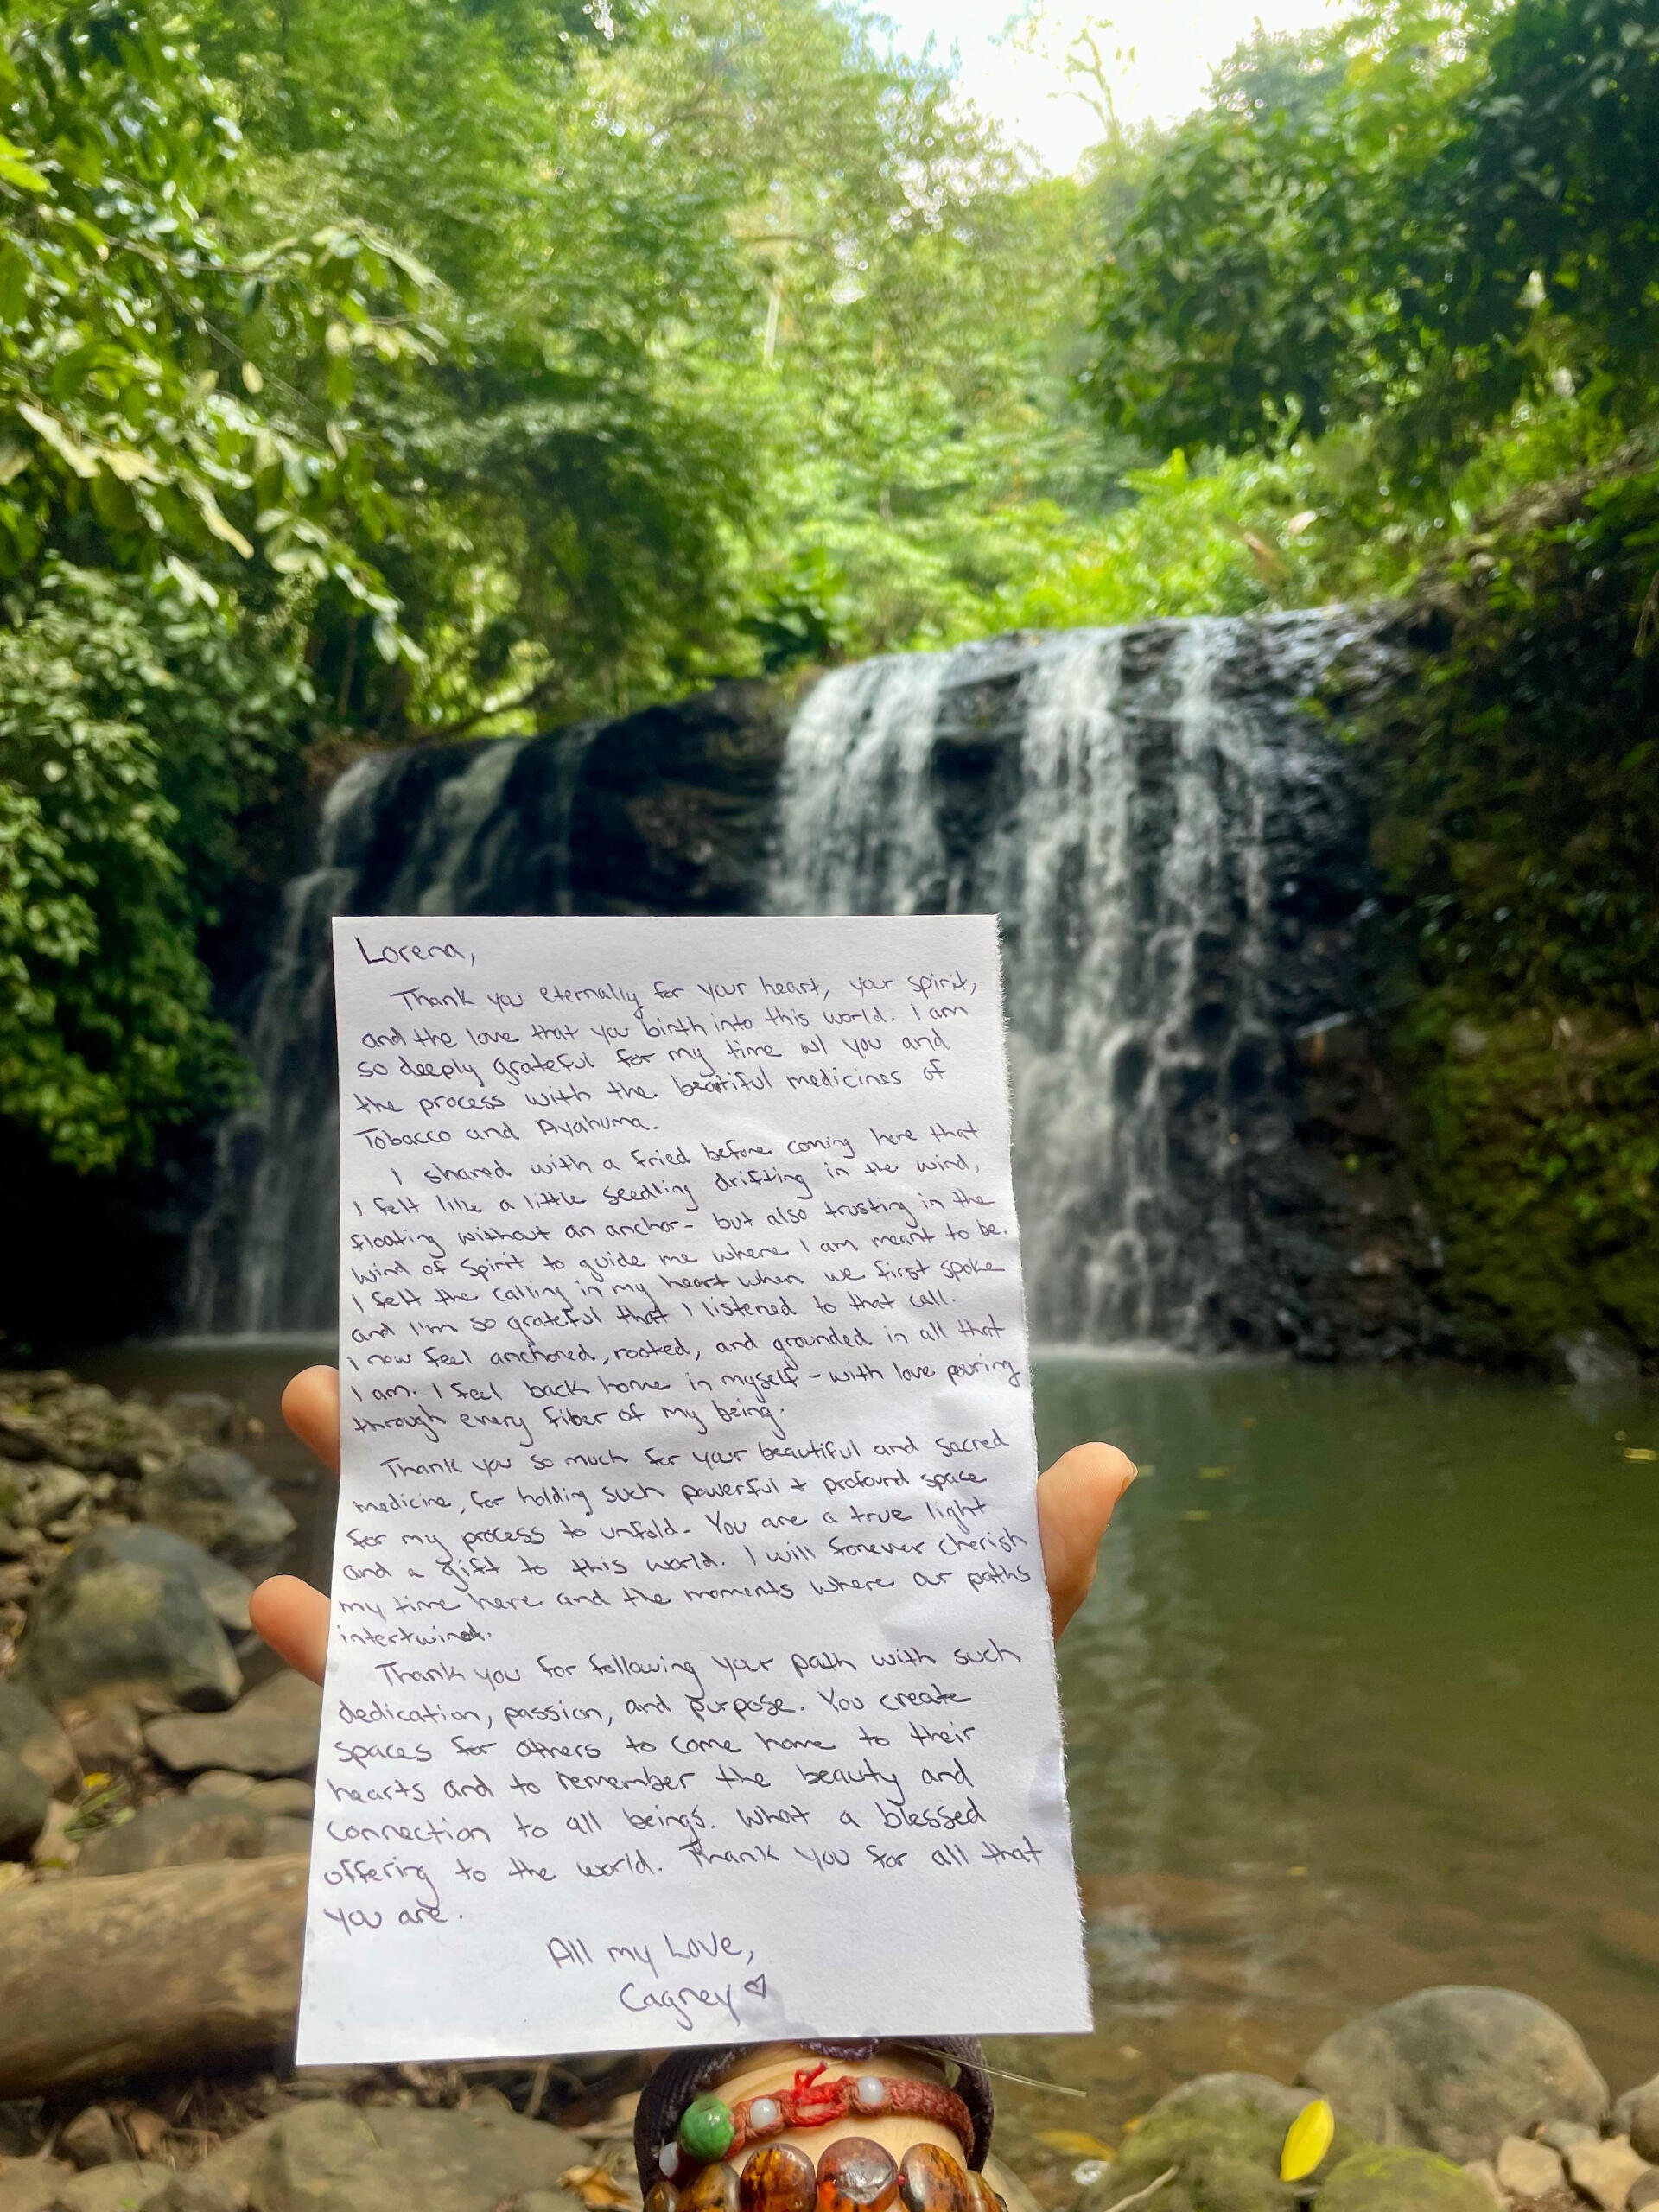 Lorena,
Thank you eternally for your heart, your spirit,
and the love that you birth into this world. I am
so deeply grateful for my time w/ you and
the process with the beautiful medicines of
Tobacco and Ayahuma.
I shared with a fried before coming here that
I felt like a little seedling drifting in the wind,
floating without an anchor - but also trusting in the
wind of Spirit to guide me where I am meant to be.
I felt the calling in my heart when we first spoke
and I'm so grateful that I listened to that call.
I now feel anchored, rooted, and grounded in all that
I am. I feel back home in myself - with love pouring
through every fiber of my being.
Thank you so much for your beautiful and sacred
medicine, for holding such powerful + profound space
for my process to unfold. You are a true light
and a gift to this world. I will forever cherish
my time here and the moments where our paths
intertwined.
Thank you for following your path with such
dedication, passion, and purpose. You create
spaces for others to come home to their
hearts and to remember the beauty and
connection to all beings. What a blessed
offering to the world. Thank you for all that
you are.
All my Love,
Cagney ♡